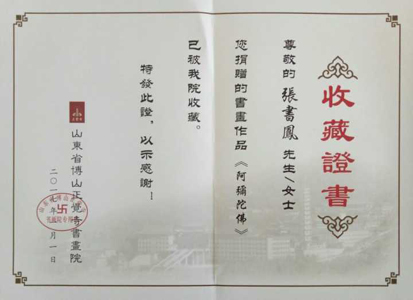 收藏證書
尊敬的張書鳳先生/女士
您捐贈的書畫作品《阿彌陀佛》
已被我院收藏。
特發此證，以示感謝！
山東省博山正覺寺書畫院
二〇一 年 月一日